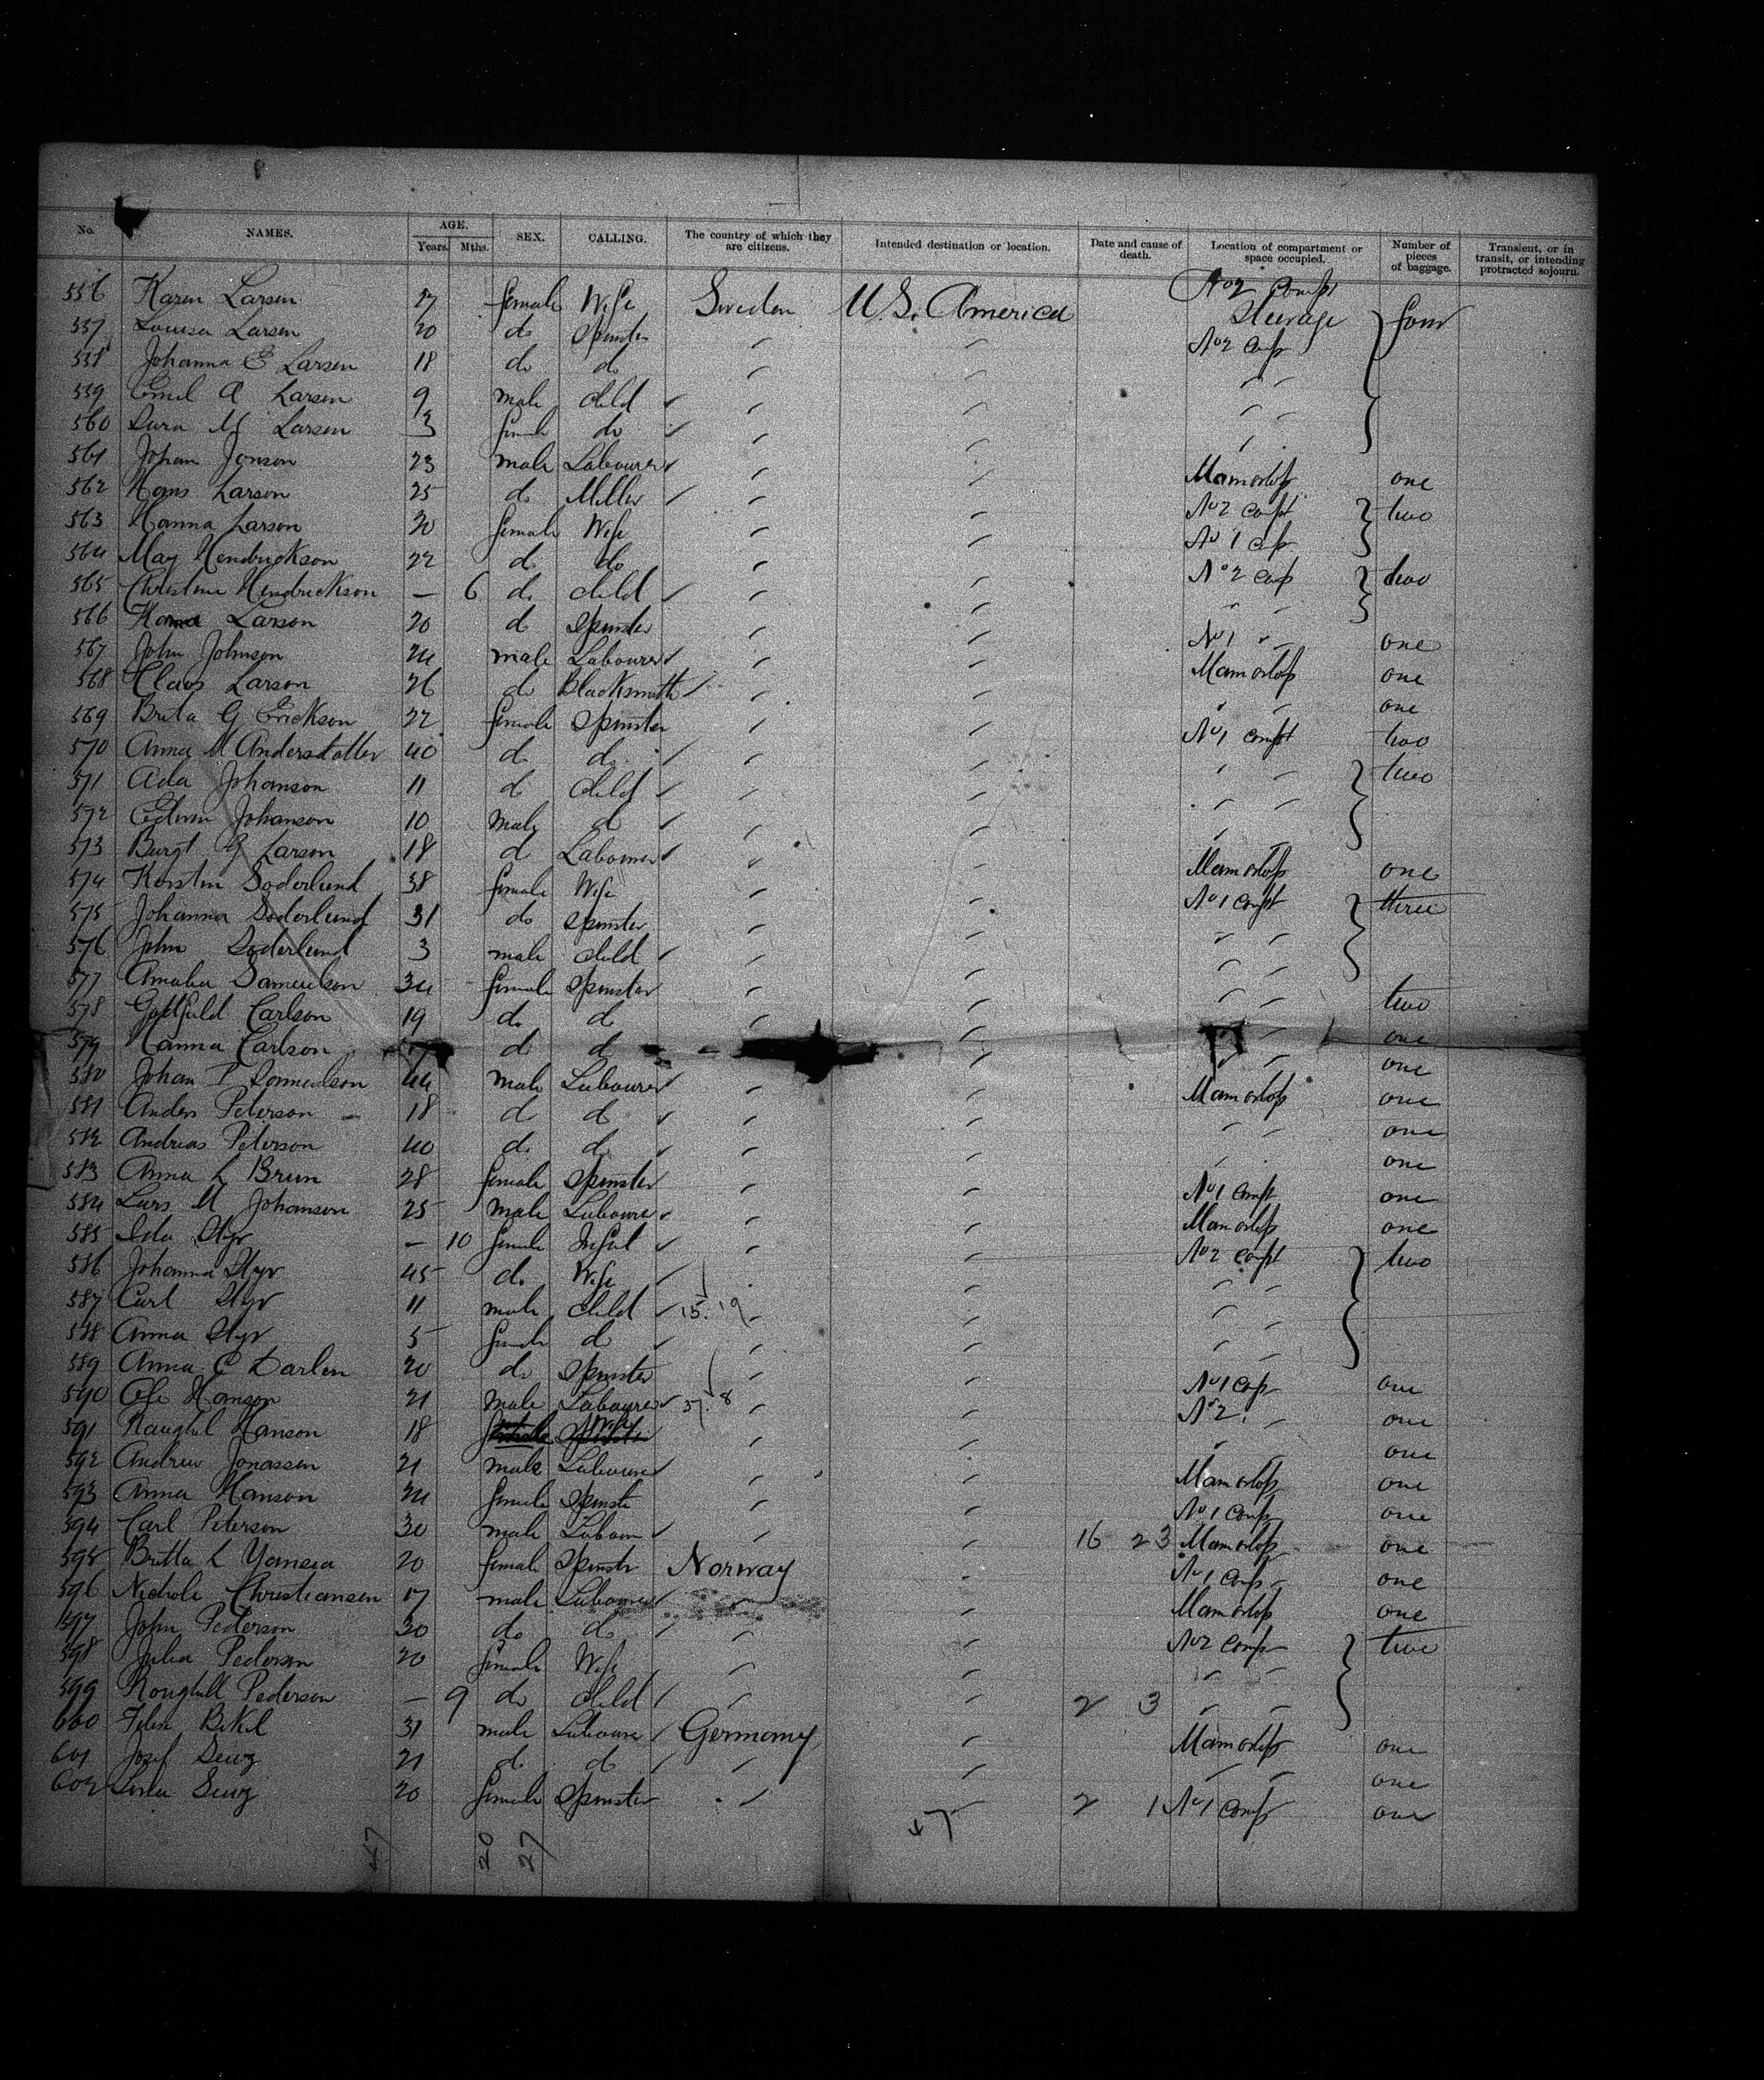 No. NAMES. AGE. Years. Mths. SEX. CALLING. The country of which they are citizens. Intended destination or location. Date and cause of death. Location of compartment or space occupied. Number of pieces of baggage. Transient, or in transit, or intending protracted sojourn.
556 Karen Larsen 27 female Wife Sweden U.S. America No 2 Compt Steerage four
557 Louisa Larsen 20 do Spinster No 2 Comp
558 Johanna E Larsen 18 do do
559 Emil A Larsen 9 male child
560 Sara M Larsen 3 female do
561 Johan Jonson 23 male Labourer Main orlop one
562 Hans Larson 25 do Miller No 2 compt two
563 Hanna Larson 20 female Wife No 1 Comp
564 May Hendrickson 22 do do No 2 Comp two
565 Christine Hendrickson — 6 do child
566 Larson 20 d Spinster No 1 one
567 John Johnson 24 male Labourer Main orlop one
568 Claus Larson 26 do Blacksmith one
569 Brita G Erickson 22 female Spinster No 1 compt two
570 Anna M 40 d do two
571 Ada Johanson 11 d child
572 Edwin Johanson 10 male d
573 Larson 18 d Labourer Main orlop one
574 Kerstin Soderlund 38 female Wife No 1 Compt three
575 Johanna Soderlund 31 do Spinster
576 John Soderlund 3 male child
577 Amalia Samuelson 34 female Spinster two
578 Carlson 19 do d one
579 Hanna Carlson d d one
580 Johan P 44 male Labourer Main orlop one
581 Anders Peterson 18 d d one
582 Andreas Peterson 40 d. d. one
583 Anna L Brun 28 female Spinster No 1 Compt one
584 Lars M Johanson 25 male Labourer Main orlop one
585 Ida Styr — 10 female Infnt No 2 compt two
586 Johanna Styr 45 do Wife
587 Carl Styr 11 male child 15. 19
588 Anna Styr 5 female d
589 Anna C Darlen 20 do Spinster No 1 Comp one
590 Ole Hanson 21 male Labourer 5. 8 No 2. one
591 Hanson 18 Wife one
592 Andrew Jonassen 21 male Labourer Main orlop one
593 Anna Hanson 24 female Spinster No 1 Comp one
594 Carl Peterson 30 male Labour 16 23 Main orlop one
595 Britta L 20 female Spinstr Norway No 1 Comp one
596 Nichole Christiansen 17 male Labourer Main orlop one
597 John Pederson 30 do do No 2 Comp two
598 Julia Pederson 20 female Wife
599 Pederson — 9 do child 2 3
600 31 male Labourer Germany Main orlop one
601 Josef 21 d d one
602 20 female Spinster 2 1 No 1 Comp one
47 20 27 47